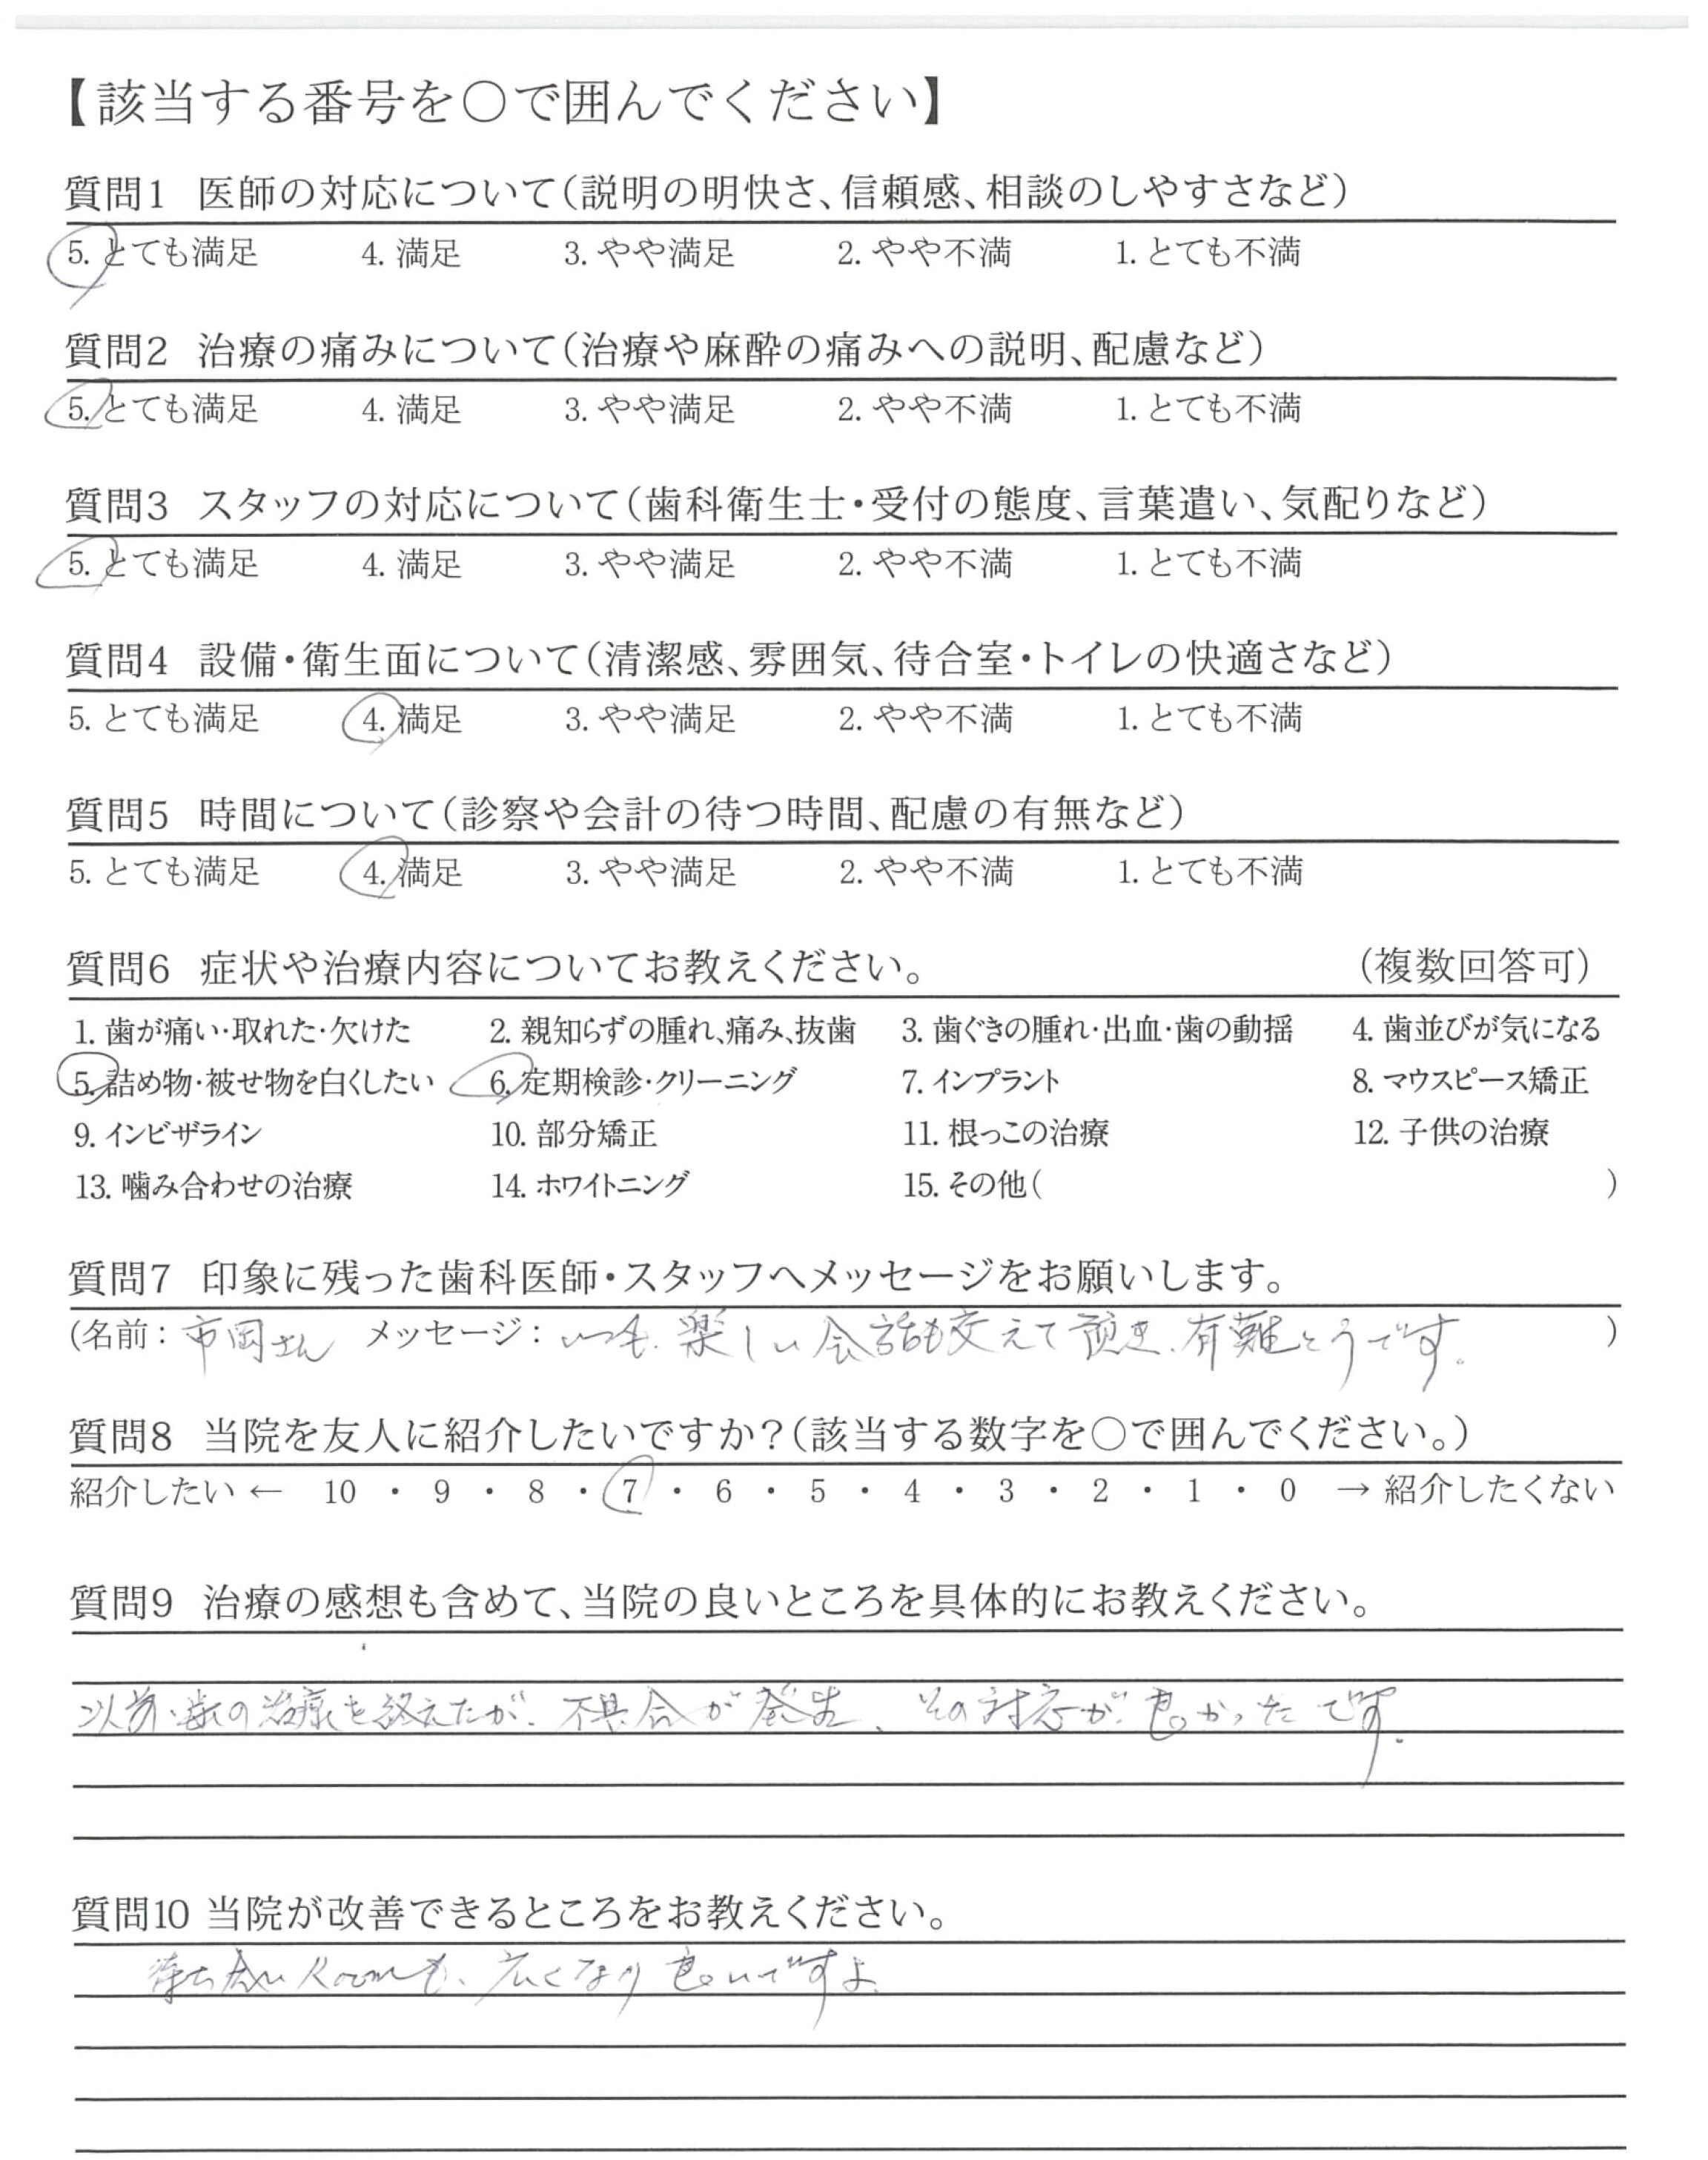 【該当する番号を○で囲んでください】
質問1 医師の対応について(説明の明快さ、信頼感、相談のしやすさなど)
5. とても満足 4. 満足 3. やや満足 2. やや不満 1. とても不満
質問2 治療の痛みについて(治療や麻酔の痛みへの説明、配慮など)
5. とても満足 4. 満足 3. やや満足 2. やや不満 1. とても不満
質問3 スタッフの対応について(歯科衛生士・受付の態度、言葉遣い、気配りなど)
5. とても満足 4. 満足 3. やや満足 2. やや不満 1. とても不満
質問4 設備・衛生面について(清潔感、雰囲気、待合室・トイレの快適さなど)
5. とても満足 4. 満足 3. やや満足 2. やや不満 1. とても不満
質問5 時間について(診察や会計の待つ時間、配慮の有無など)
5. とても満足 4. 満足 3. やや満足 2. やや不満 1. とても不満
質問6 症状や治療内容についてお教えください。 (複数回答可)
1. 歯が痛い・取れた・欠けた 2. 親知らずの腫れ、痛み、抜歯 3. 歯ぐきの腫れ・出血・歯の動揺 4. 歯並びが気になる
5. 詰め物・被せ物を白くしたい 6. 定期検診・クリーニング 7. インプラント 8. マウスピース矯正
9. インビザライン 10. 部分矯正 11. 根っこの治療 12. 子供の治療
13. 噛み合わせの治療 14. ホワイトニング 15. その他( )
質問7 印象に残った歯科医師・スタッフへメッセージをお願いします。
(名前：市岡さん メッセージ：いつも、楽しい会話も交えて頂き、有難とうです。 )
質問8 当院を友人に紹介したいですか？(該当する数字を○で囲んでください。)
紹介したい ← 10 ・ 9 ・ 8 ・ 7 ・ 6 ・ 5 ・ 4 ・ 3 ・ 2 ・ 1 ・ 0 → 紹介したくない
質問9 治療の感想も含めて、当院の良いところを具体的にお教えください。
以前、歯の治療を終えたが、不具合が発生、その対応が良かったです。
質問10 当院が改善できるところをお教えください。
待ち合いRoomも、広くなり良いですよ。